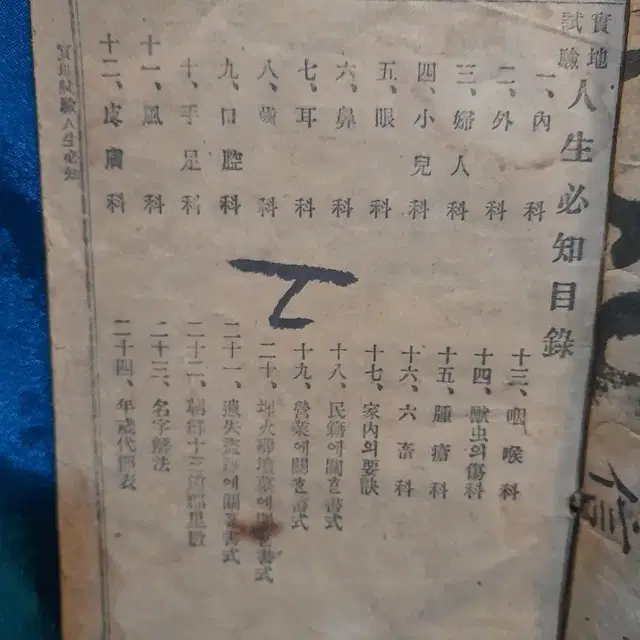 實地試驗 人生必知目錄
一、內科
二、外科
三、婦人科
四、小兒科
五、眼科
六、鼻科
七、耳科
八、齒科
九、口腔科
十、手足科
十一、風科
十二、皮膚科
十三、咽喉科
十四、獸虫의傷科
十五、腫瘡科
十六、六畜科
十七、家內의要訣
十八、民籍에關한書式
十九、營業에關한書式
二十、埋火葬墳墓에關한書式
二十一、遺失盜難에關한書式
二十二、朝鮮十三道
二十三、名字解法
二十四、年歲代照表
實地試驗人生必知